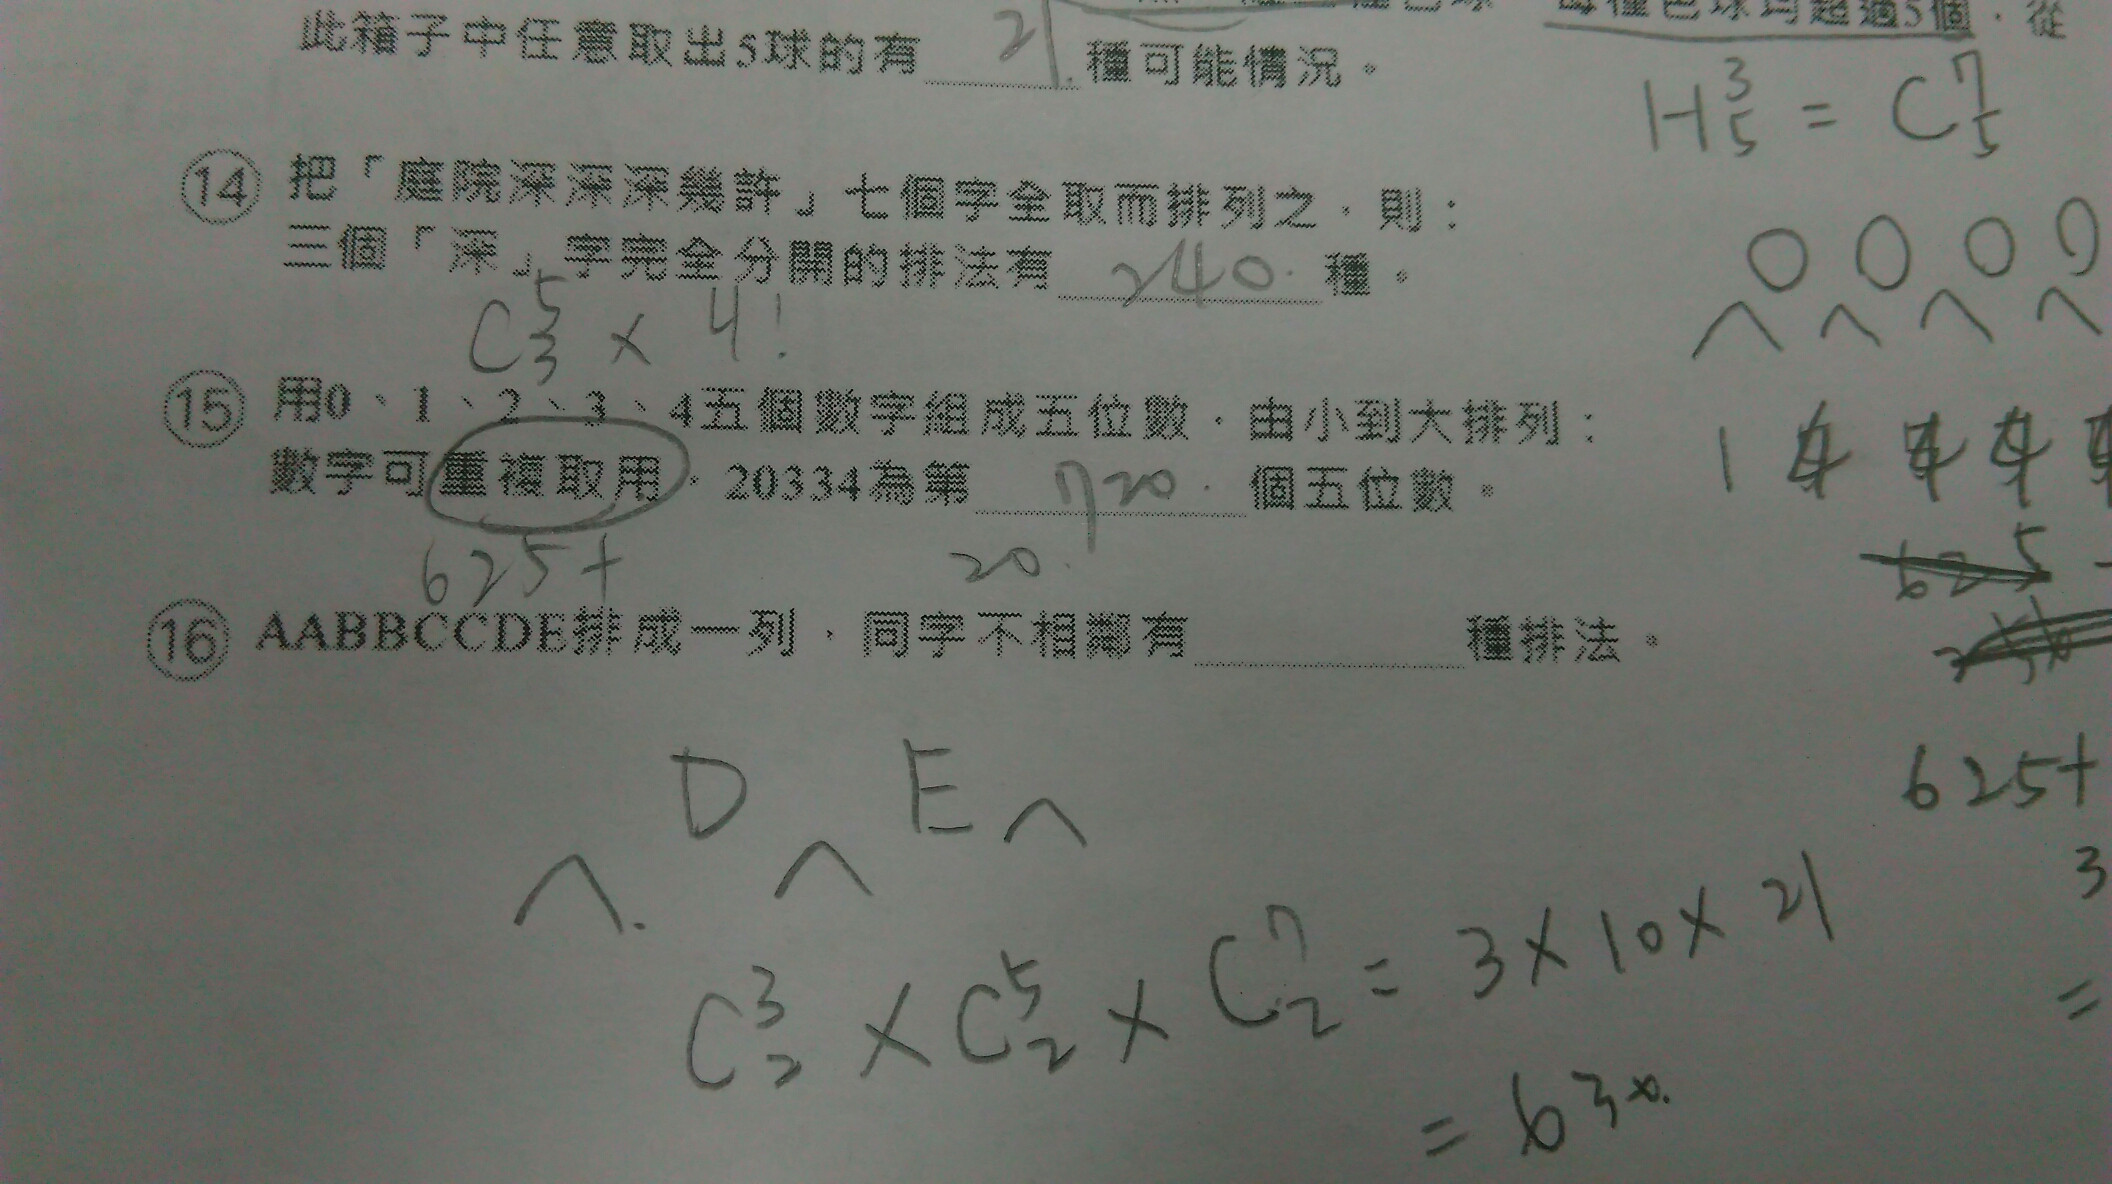 每種色球均超過5個，從
此箱子中任意取出5球的有 21. 種可能情況。
H³₅ = C⁷₅
⑭ 把「庭院深深深幾許」七個字全取而排列之，則：
三個「深」字完全分開的排法有 240. 種。
C⁵₃ × 4!
⑮ 用0、1、2、3、4五個數字組成五位數，由小到大排列：
數字可重複取用，20334為第 720. 個五位數。
625+ 20.
625
⑯ AABBCCDE排成一列，同字不相鄰有 種排法。
625+
D E
3
C³₂ × C⁵₂ × C⁷₂ = 3 × 10 × 21
=
= 630.